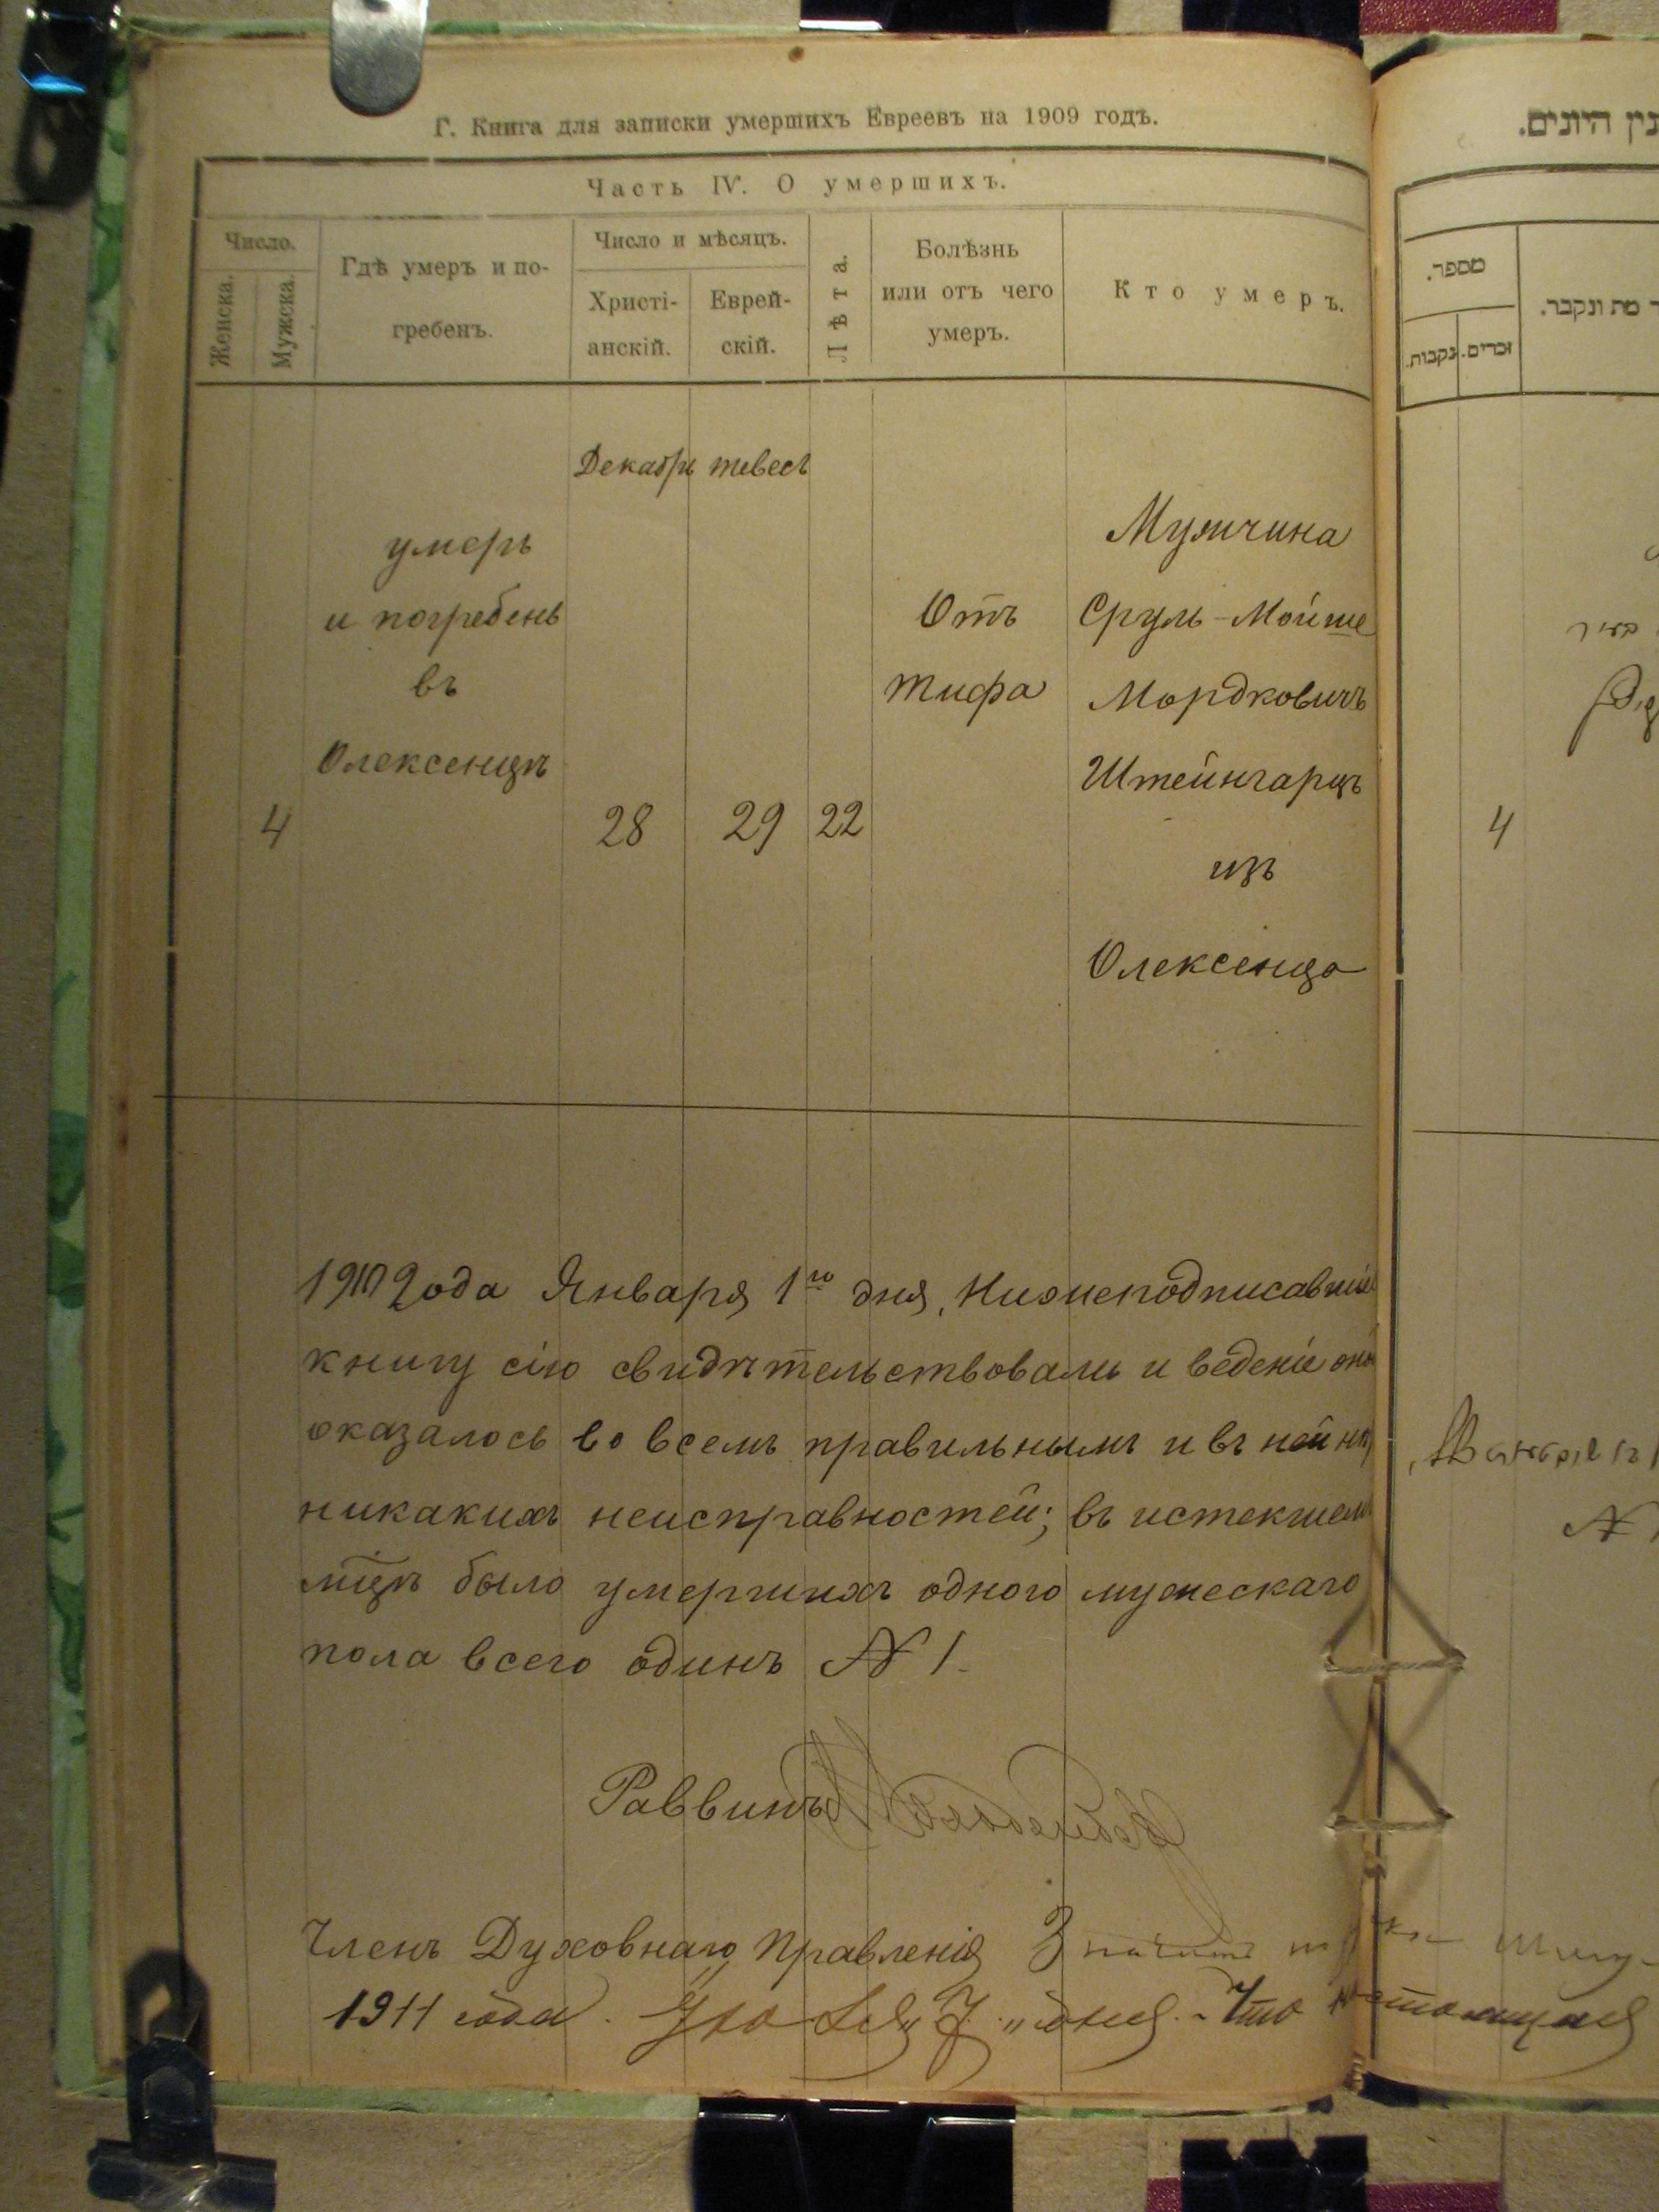 Г. Книга для записки умершихъ Евреевъ на 1909 годъ.
Часть IV. О умершихъ.
Число.
Женска.
Мужска.
Гдѣ умеръ и по-
гребенъ.
Число и мѣсяцъ.
Христі-
анскій.
Еврей-
скій.
Лѣта.
Болѣзнь
или отъ чего
умеръ.
Кто умеръ.
Декабрь тевесъ
умеръ
и погребенъ
въ
Олексенцѣ
4
28
29
22
Отъ
тифа
Мужчина
Сруль-Мойше
Мордковичъ
Штейнгарцъ
изъ
Олексенца
1910 года Января 1го дня, Нижеподписавшіе
книгу сію свидѣтельствовали и веденіе
оказалось во всемъ правильнымъ и въ ней
никакихъ неисправностей; въ истекшемъ
мцѣ было умершихъ одного мужескаго
пола всего одинъ № 1.
Раввинъ
Членъ Духовнаго Правленія
1911 года. дня. Что настоящая
מספר.
זכרים.
נקבות.
מת ונקבר.
4